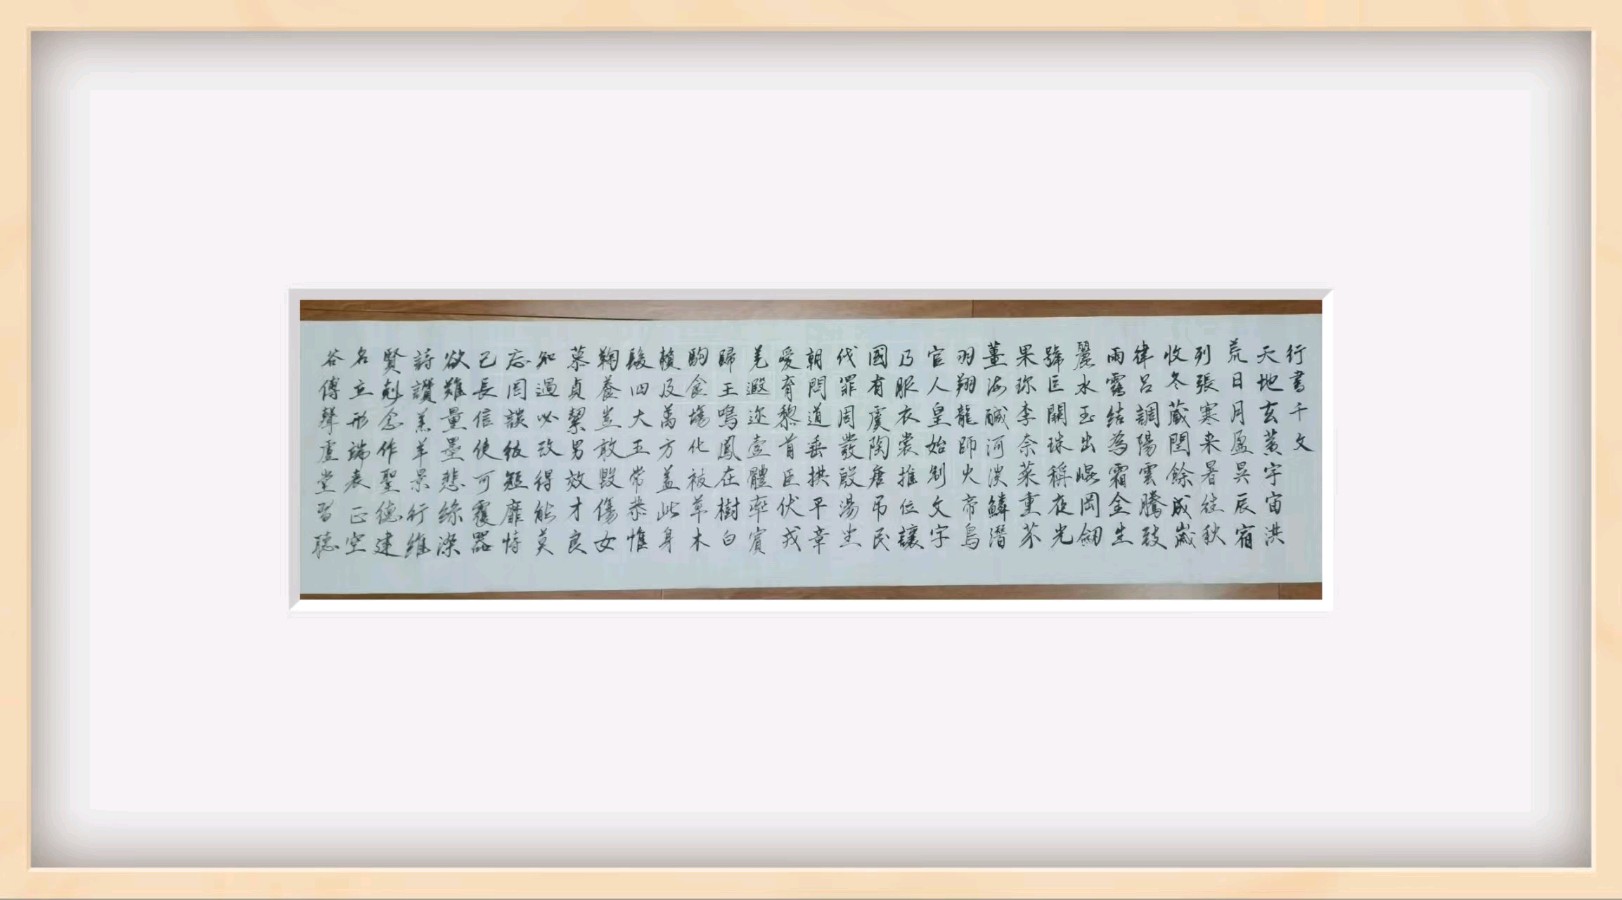 行書千文
天地玄黃宇宙洪
荒日月盈昃辰宿
列張寒来暑往秋
收冬藏閏餘成歲
律呂調陽雲騰致
雨露結為霜金生
麗水玉出崐岡劒
號巨闕珠稱夜光
果珍李柰菜重芥
薑海醎河淡鱗潛
羽翔龍師火帝鳥
官人皇始制文字
乃服衣裳推位讓
國有虞陶唐吊民
伐罪周發殷湯坐
朝問道垂拱平章
愛育黎首臣伏戎
羌遐迩壹體率賓
歸王鳴鳳在樹白
駒食場化被草木
賴及萬方盖此身
髮四大五常恭惟
鞠養豈敢毀傷女
慕貞絜男效才良
知過必改得能莫
忘罔談彼短靡恃
己長信使可覆器
欲難量墨悲絲染
詩讚羔羊景行維
賢剋念作聖德建
名立形端表正空
谷傳聲虛堂習聽